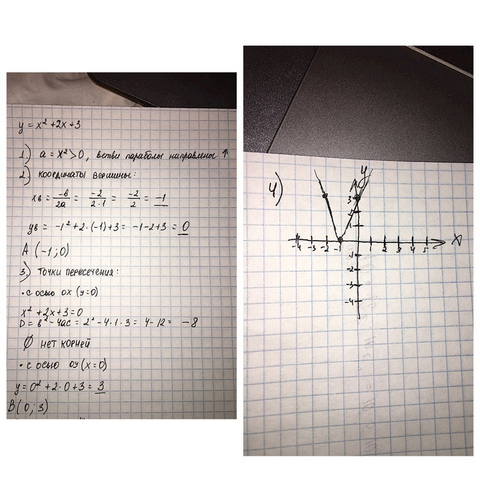 y = x² + 2x + 3
1) a = x² > 0, ветви параболы направлены ↑
2) координаты вершины:
xв = -b/2a = -2/2·1 = -2/2 = -1
yв = -1² + 2·(-1) + 3 = -1 - 2 + 3 = 0
A (-1; 0)
3) Точки пересечения:
· с осью ox (y = 0)
x² + 2x + 3 = 0
D = b² - 4ac = 2² - 4·1·3 = 4 - 12 = -8
∅ нет корней
· с осью oy (x = 0)
y = 0² + 2·0 + 3 = 3
B (0; 3)
4)
y
3
2
1
-4 -3 -2 -1 1 2 3 4 5 X
-1
-2
-3
-4